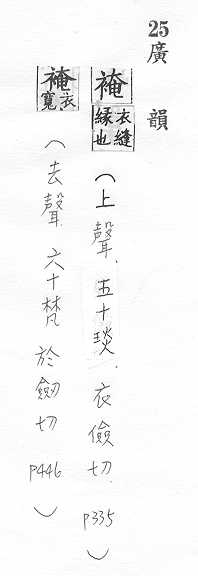 25廣韻
裺 衣縫緣也
(上聲.五十琰.衣儉切. P335)
裺 衣寬
(去聲 六十梵 於劒切 P446)